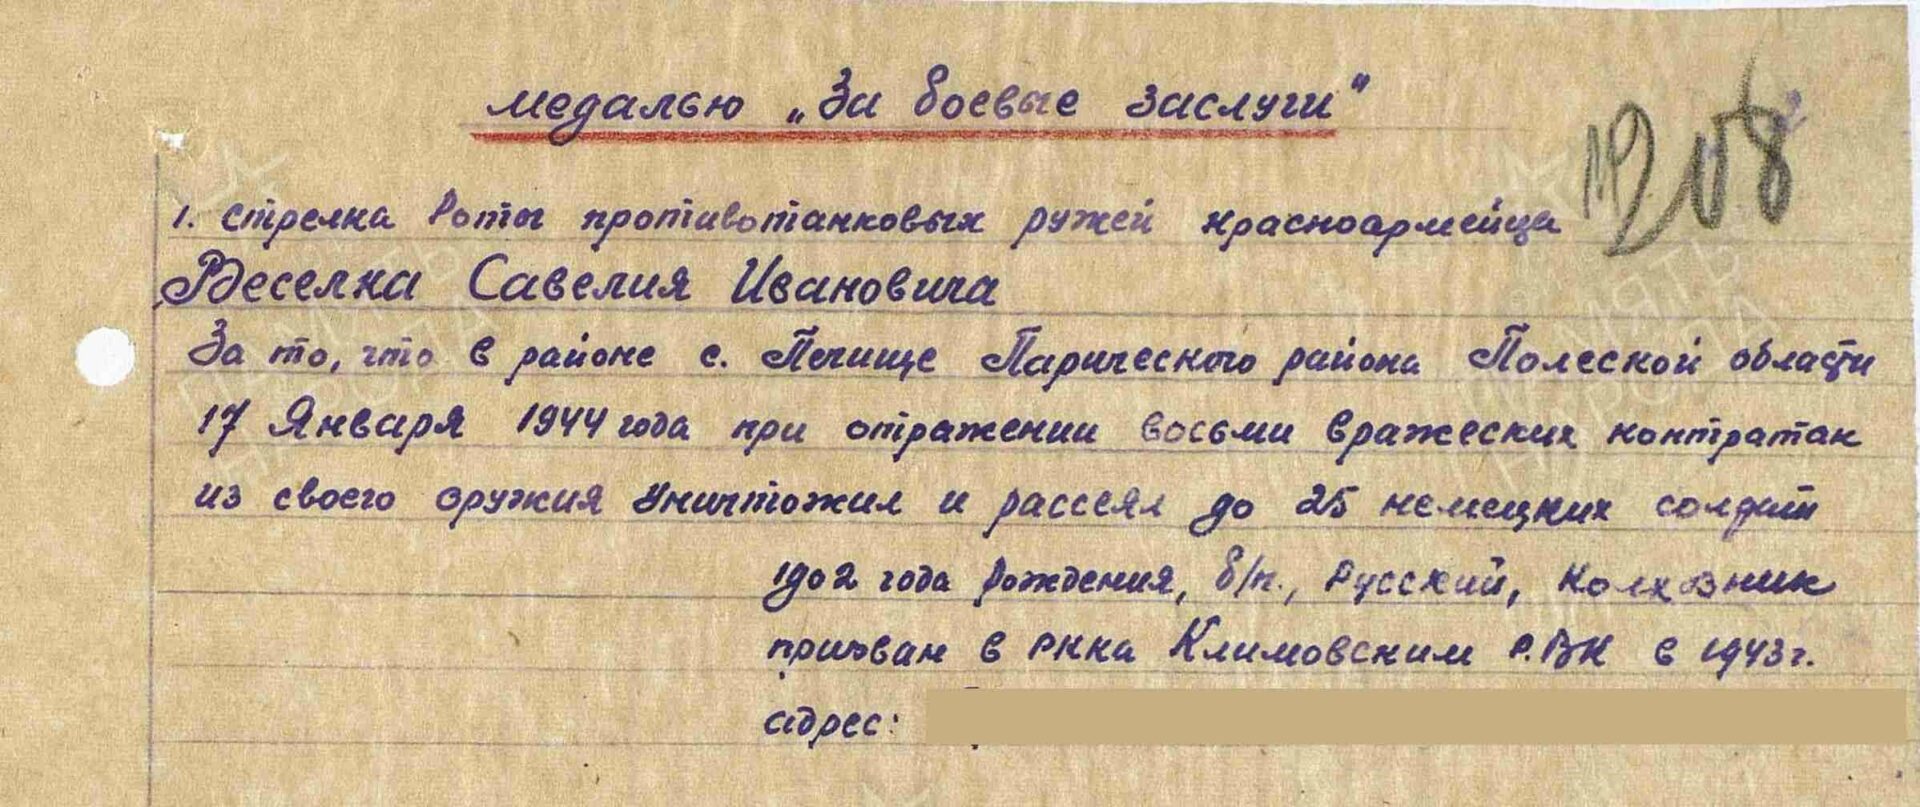 медалью „За боевые заслуги"
1. стрелка Роты противотанковых ружей красноармейца
Савелия Ивановича
За то, что в районе с. Печище Парического района Полеской области
17 Января 1944 года при отражении восьми вражеских контратак
из своего оружия уничтожил и рассеял до 25 немецких солдат
1902 года рождения, б/п., Русский, Колхозник
призван в РККА Климовским Р.ВК в 1943 г.
адрес:
ПАМЯТЬ НАРОДА
ПАМЯТЬ НАРОДА